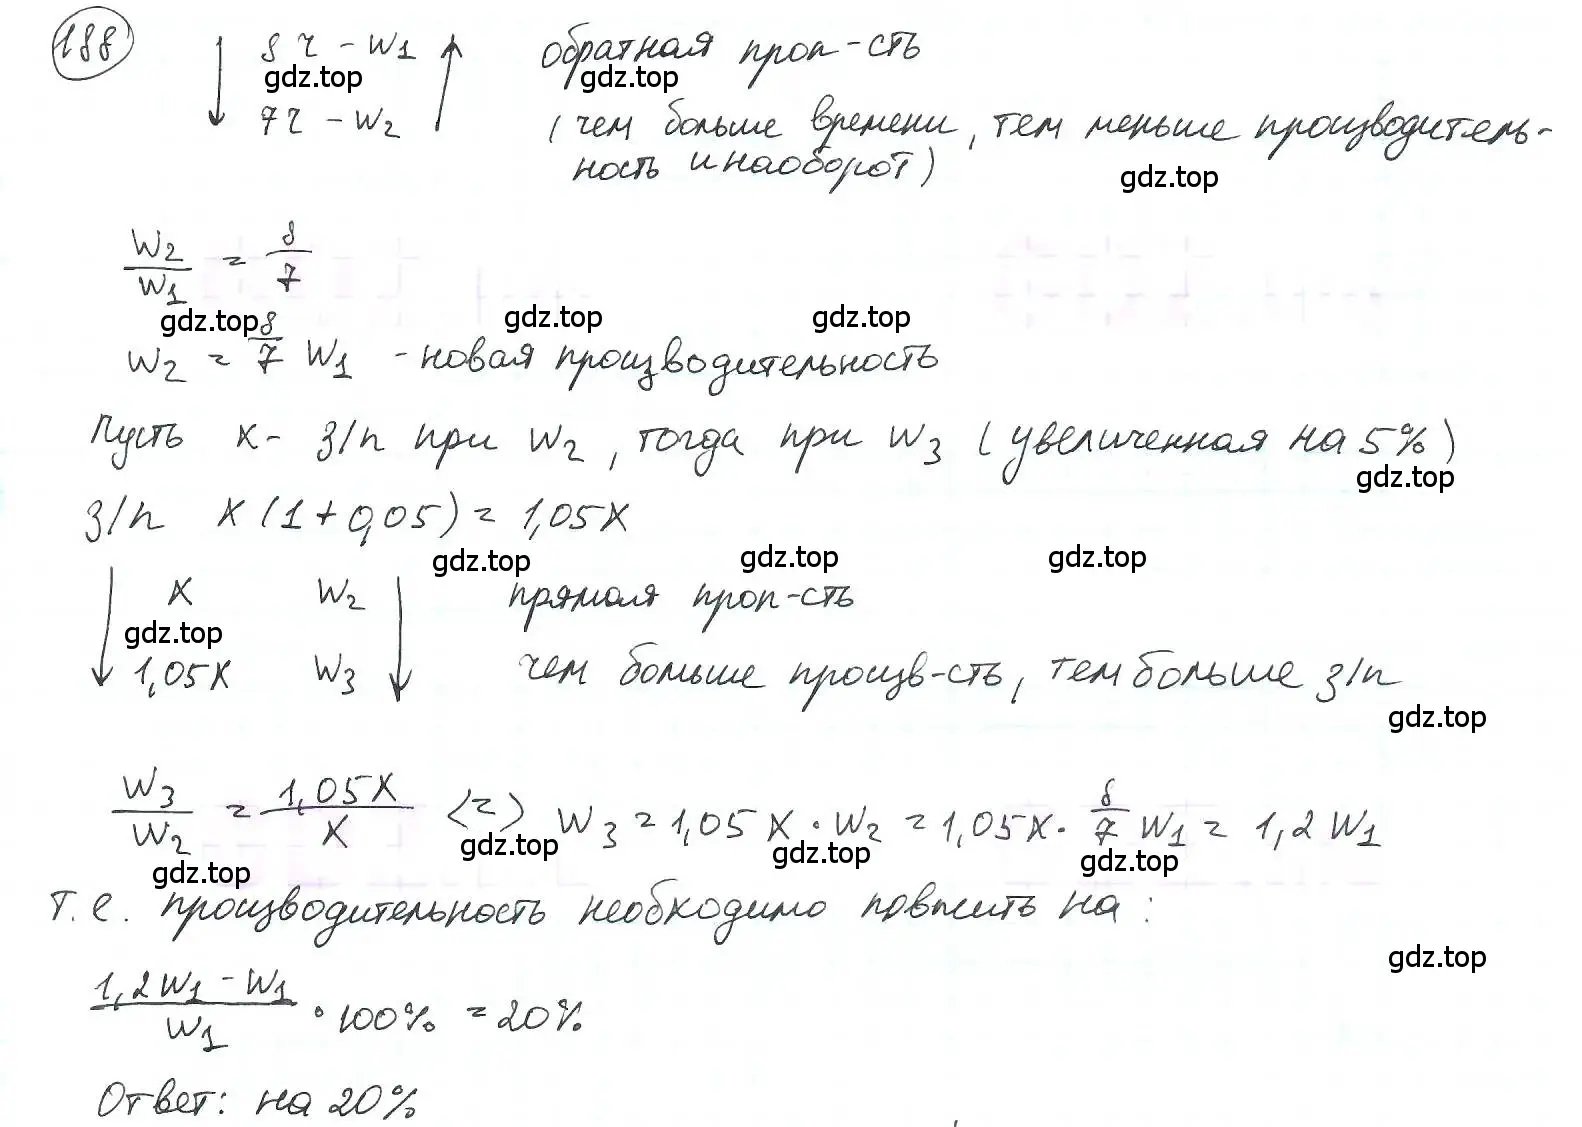 188 8 ч - W1 обратная проп-сть
gdz.top gdz.top
7ч - W2 (чем больше времени, тем меньше производитель-
ность и наоборот)
gdz.top
W2/W1 = 8/7
gdz.top gdz.top gdz.top
W2 = 8/7 W1 - новая производительность
Пусть x - з/п при W2, тогда при W3 (увеличенная на 5%)
gdz.top
з/п x(1+0,05) = 1,05x
gdz.top gdz.top gdz.top
x W2 прямая проп-сть
gdz.top
1,05x W3 чем больше произв-сть, тем больше з/п
gdz.top
W3/W2 = 1,05x/x <=> W3 = 1,05x · W2 = 1,05x · 8/7 W1 = 1,2 W1
gdz.top gdz.top gdz.top gdz.top
т.е. производительность необходимо повысить на:
gdz.top
1,2W1 - W1/W1 · 100% = 20%
Ответ: на 20%